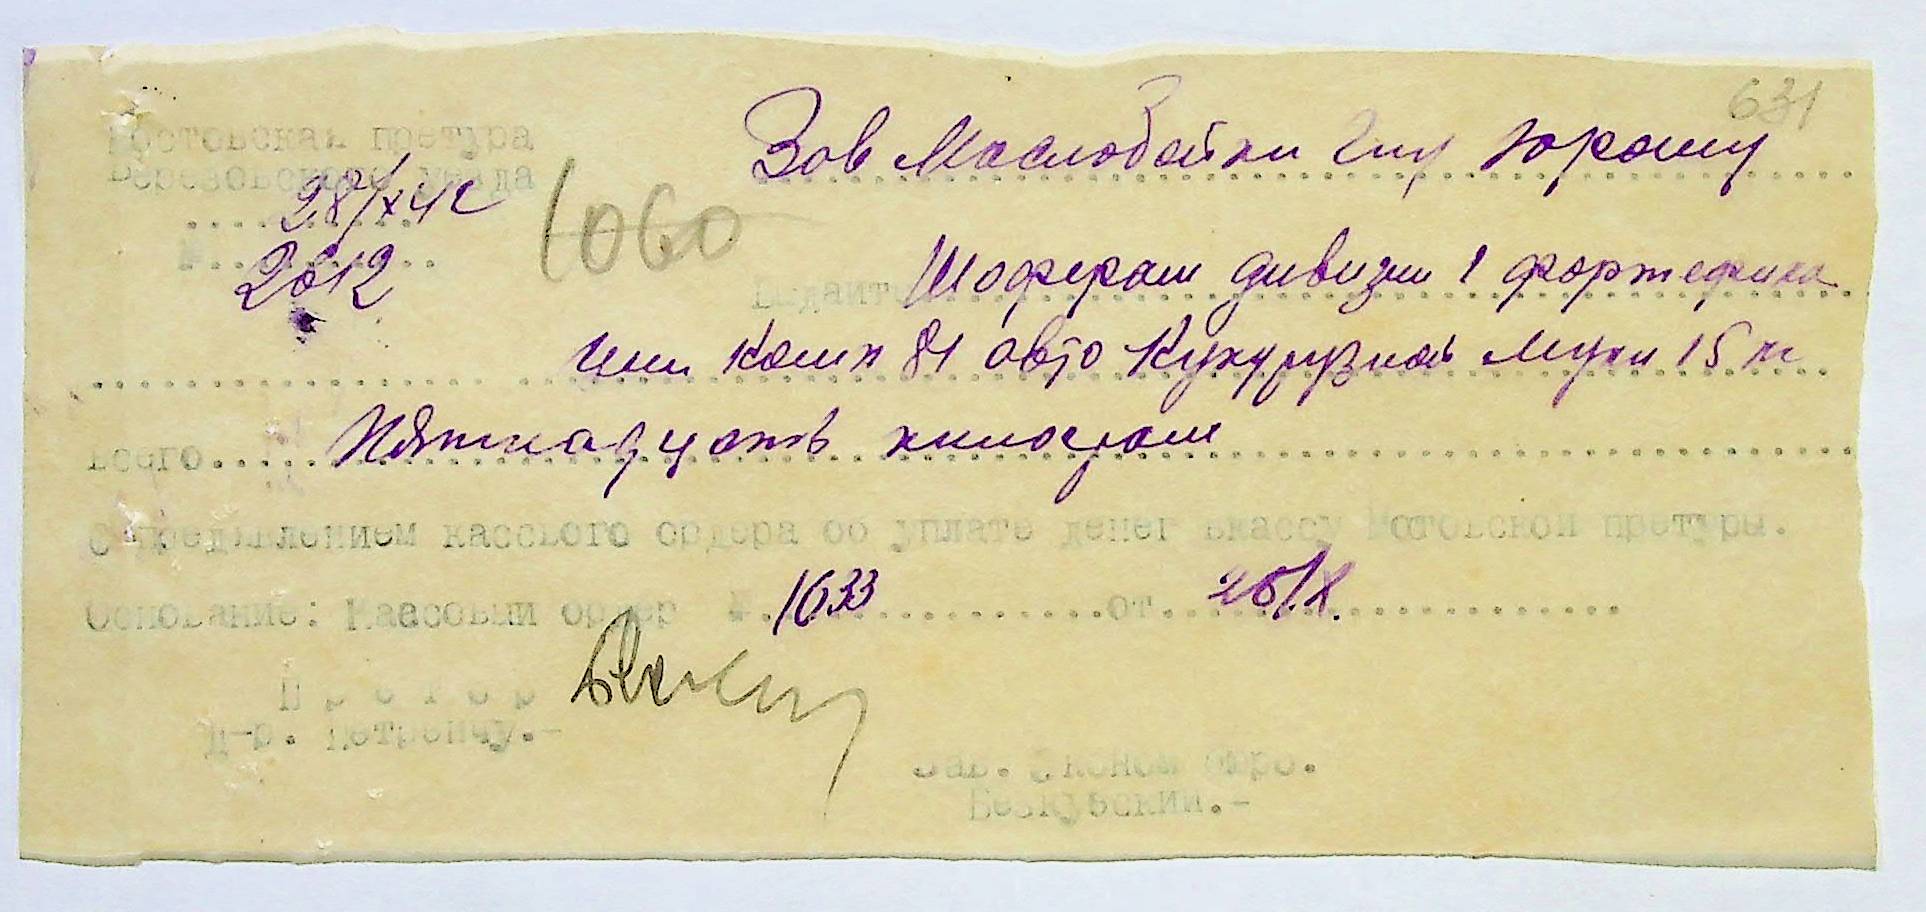 631
Ростовская претура
Березовского уезда
28/X 42
№ 2612
1060
Зав Маслобойки Юрашу
Выдайте Шоферам дивизии 1 фортефика
ции 81 авто Кукурузной Муки 15 кг
всего Пятнадцать килограм
С предявлением кассвого ордера об уплате денег вкассу Ростовской претуры.
Основание: Каассовый ордер № 1633 от 26/X.
Претор
Д-р. Петренчу.-
Зав. Эконом бюро.